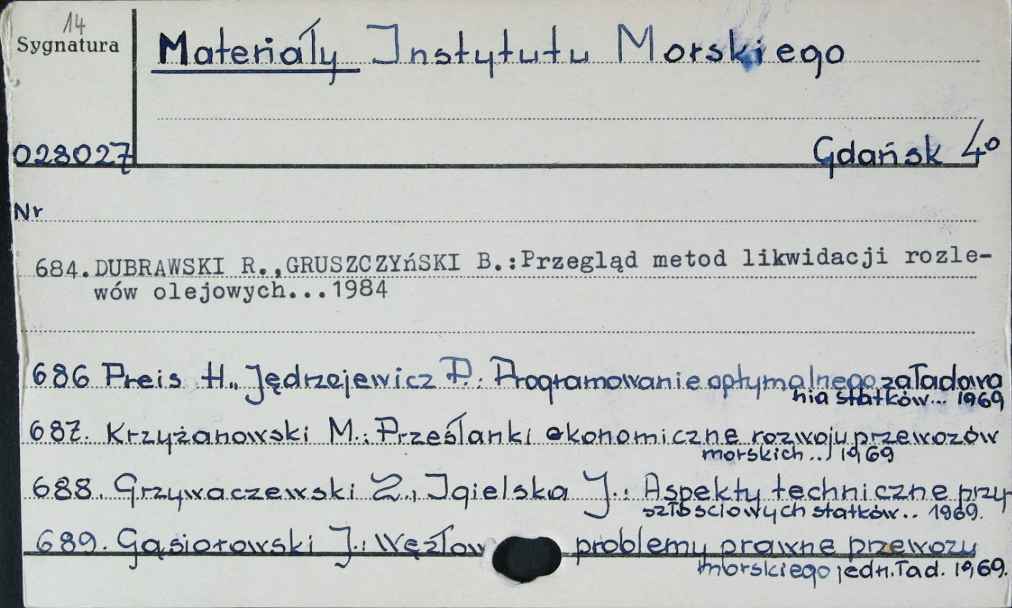 14
Sygnatura
Materiały Instytutu Morskiego
028027
Gdańsk 4º
Nr
684. DUBRAWSKI R., GRUSZCZYńSKI B.: Przegląd metod likwidacji rozle-
wów olejowych...1984
686 Preis H., Jędrzejewicz P.: Programowanie optymalnego załadowa
nia statków... 1969
687. Krzyżanowski M.: Przesłanki ekonomiczne rozwoju przewozów
morskich... 1969
688. Grzywaczewski Z., Igielska J.: Aspekty techniczne przy-
szłościowych statków.. 1969.
689. Gąsiorowski J.: Węzłow problemy prawne przewozu
morskiego jedn. ład. 1969.